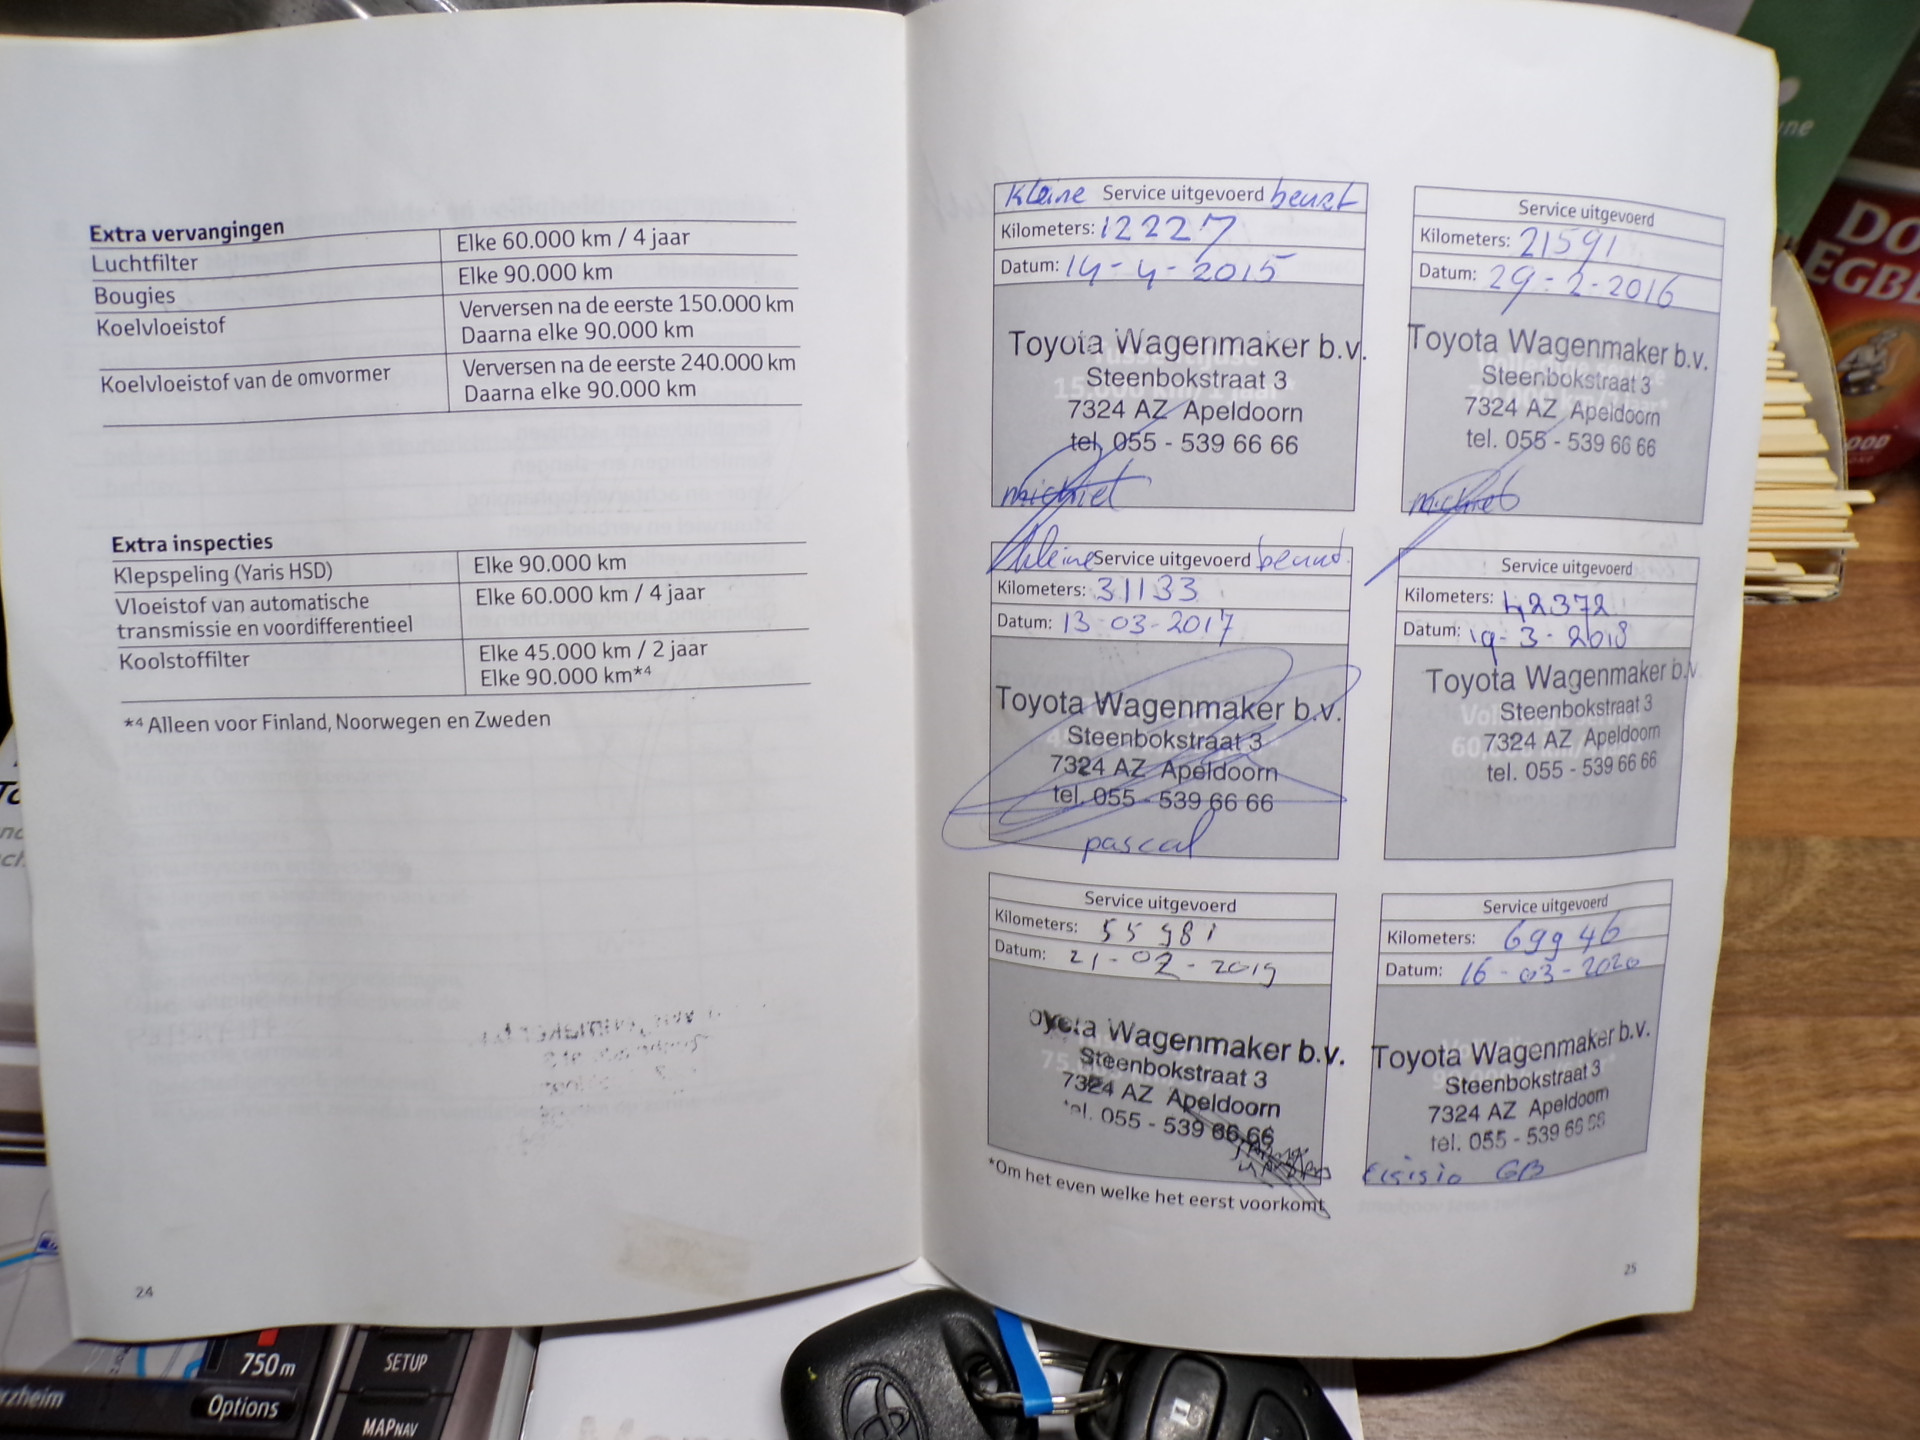 Extra vervangingen
Luchtfilter Elke 60.000 km / 4 jaar
Bougies Elke 90.000 km
Koelvloeistof Verversen na de eerste 150.000 km
Daarna elke 90.000 km
Koelvloeistof van de omvormer Verversen na de eerste 240.000 km
Daarna elke 90.000 km
Extra inspecties
Klepspeling (Yaris HSD) Elke 90.000 km
Vloeistof van automatische Elke 60.000 km / 4 jaar
transmissie en voordifferentieel
Koolstoffilter Elke 45.000 km / 2 jaar
Elke 90.000 km*4
*4 Alleen voor Finland, Noorwegen en Zweden
24
Kleine Service uitgevoerd beurt
Kilometers: 12227
Datum: 14-4-2015
Toyota Wagenmaker b.v.
Steenbokstraat 3
7324 AZ Apeldoorn
tel. 055 - 539 66 66
michiel
Service uitgevoerd
Kilometers: 21591
Datum: 29-2-2016
Toyota Wagenmaker b.v.
Steenbokstraat 3
7324 AZ Apeldoorn
tel. 055 - 539 66 66
kleine Service uitgevoerd beurt
Kilometers: 31133
Datum: 13-03-2017
Toyota Wagenmaker b.v.
Steenbokstraat 3
7324 AZ Apeldoorn
tel. 055 - 539 66 66
pascal
Service uitgevoerd
Kilometers: 42372
Datum: 19-3-2018
Toyota Wagenmaker b.v.
Steenbokstraat 3
7324 AZ Apeldoorn
tel. 055 - 539 66 66
Service uitgevoerd
Kilometers: 55981
Datum: 21-02-2019
oyota Wagenmaker b.v.
Steenbokstraat 3
7324 AZ Apeldoorn
tel. 055 - 539 66 66
Service uitgevoerd
Kilometers: 69946
Datum: 16-03-2020
Toyota Wagenmaker b.v.
Steenbokstraat 3
7324 AZ Apeldoorn
tel. 055 - 539 66 66
*Om het even welke het eerst voorkomt
25
750 m
Options
SETUP
MAP NAV
DO
EGBE